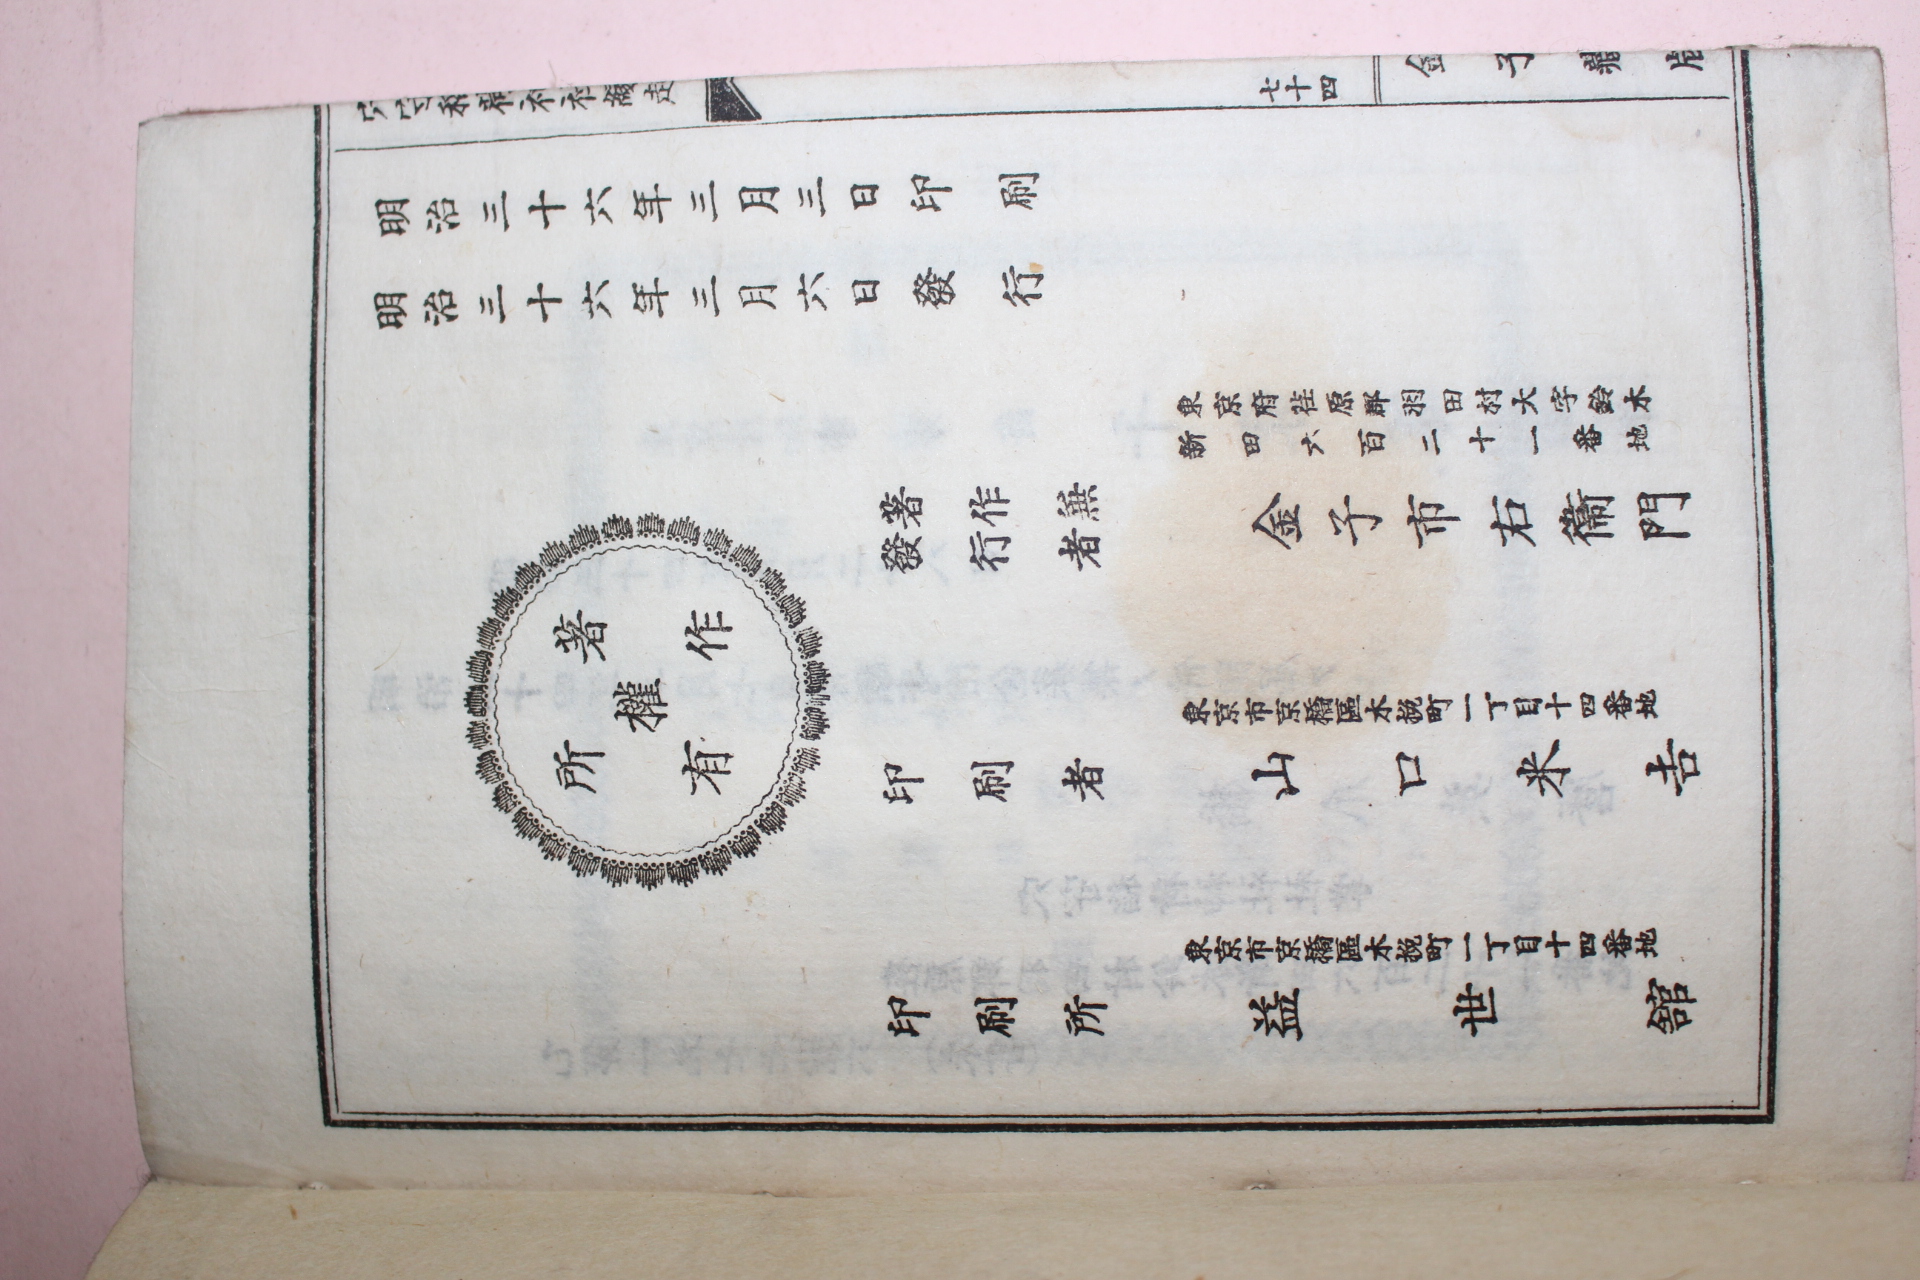 七十四
明治三十六年三月三日印刷
明治三十六年三月六日發行
著作
權
所有
東京府荏原郡羽田村大字鈴木
新田六百二十一番地
著作兼
發行者
金子市右衞門
東京市京橋區木挽町一丁目十四番地
印刷者
山口米吉
東京市京橋區木挽町一丁目十四番地
印刷所
益世舘